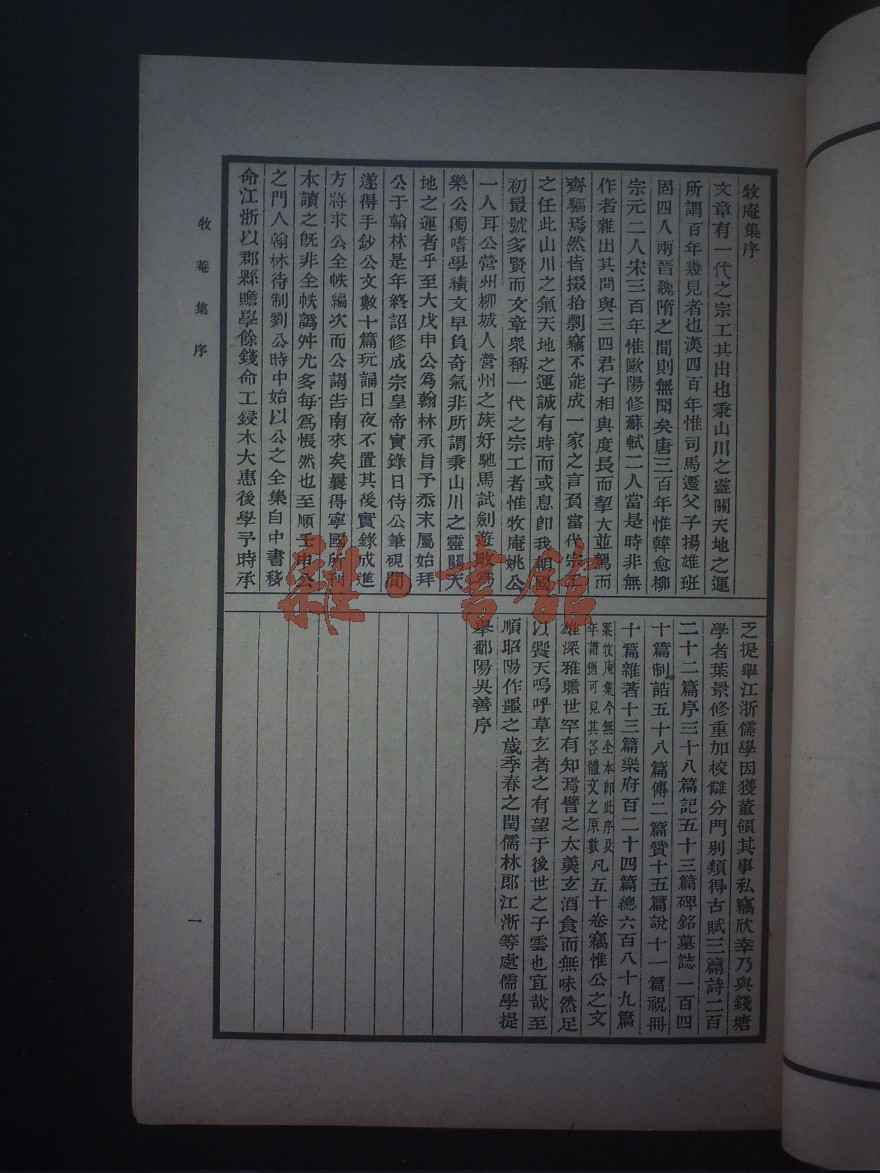 牧庵集序
文章有一代之宗工其出也秉山川之靈關天地之運
所謂百年幾見者也漢四百年惟司馬遷父子揚雄班
固四人兩晉魏隋之間則無聞矣唐三百年惟韓愈柳
宗元二人宋三百年惟歐陽修蘇軾二人當是時非無
作者雜出其間與三四君子相與度長而挈大並駕而
齊驅焉然皆掇拾剽竊不能成一家之言負當代宗工
之任此山川之氣天地之運誠有時而或息卽我朝國
初最號多賢而文章衆稱一代之宗工者惟牧庵姚公
一人耳公營州柳城人營州之族好馳馬試劍遊畋爲
樂公獨嗜學績文早負奇氣非所謂秉山川之靈關天
地之運者乎至大戊申公爲翰林承旨予忝末屬始拜
公于翰林是年終詔修成宗皇帝實錄日侍公筆硯間
遂得手鈔公文數十篇玩誦日夜不置其後實錄成進
方將求公全帙編次而公謁告南來矣曩得寧國所刊
本讀之旣非全帙譌舛尤多每爲悵然也至順壬申公
之門人翰林待制劉公時中始以公之全集自中書移
命江浙以郡縣贍學餘錢命工鋟木大惠後學予時承
乏提舉江浙儒學因獲董領其事私竊欣幸乃與錢塘
學者葉景修重加校讎分門別類得古賦三篇詩二百
二十二篇序三十八篇記五十三篇碑銘墓誌一百四
十篇制誥五十八篇傳二篇贊十五篇說十一篇祝冊
十篇雜著十三篇樂府百二十四篇總六百八十九篇
案牧庵集今無全本卽此序及
年譜猶可見其各體文之原數
凡五十卷竊惟公之文
雄深雅贍世罕有知焉譬之太羹玄酒食而無味然足
以饗天嗚呼草玄者之有望于後世之子雲也宜哉至
順昭陽作噩之歲季春之閏儒林郎江浙等處儒學提
舉鄱陽吳善序
牧庵集序
一
雜·書館